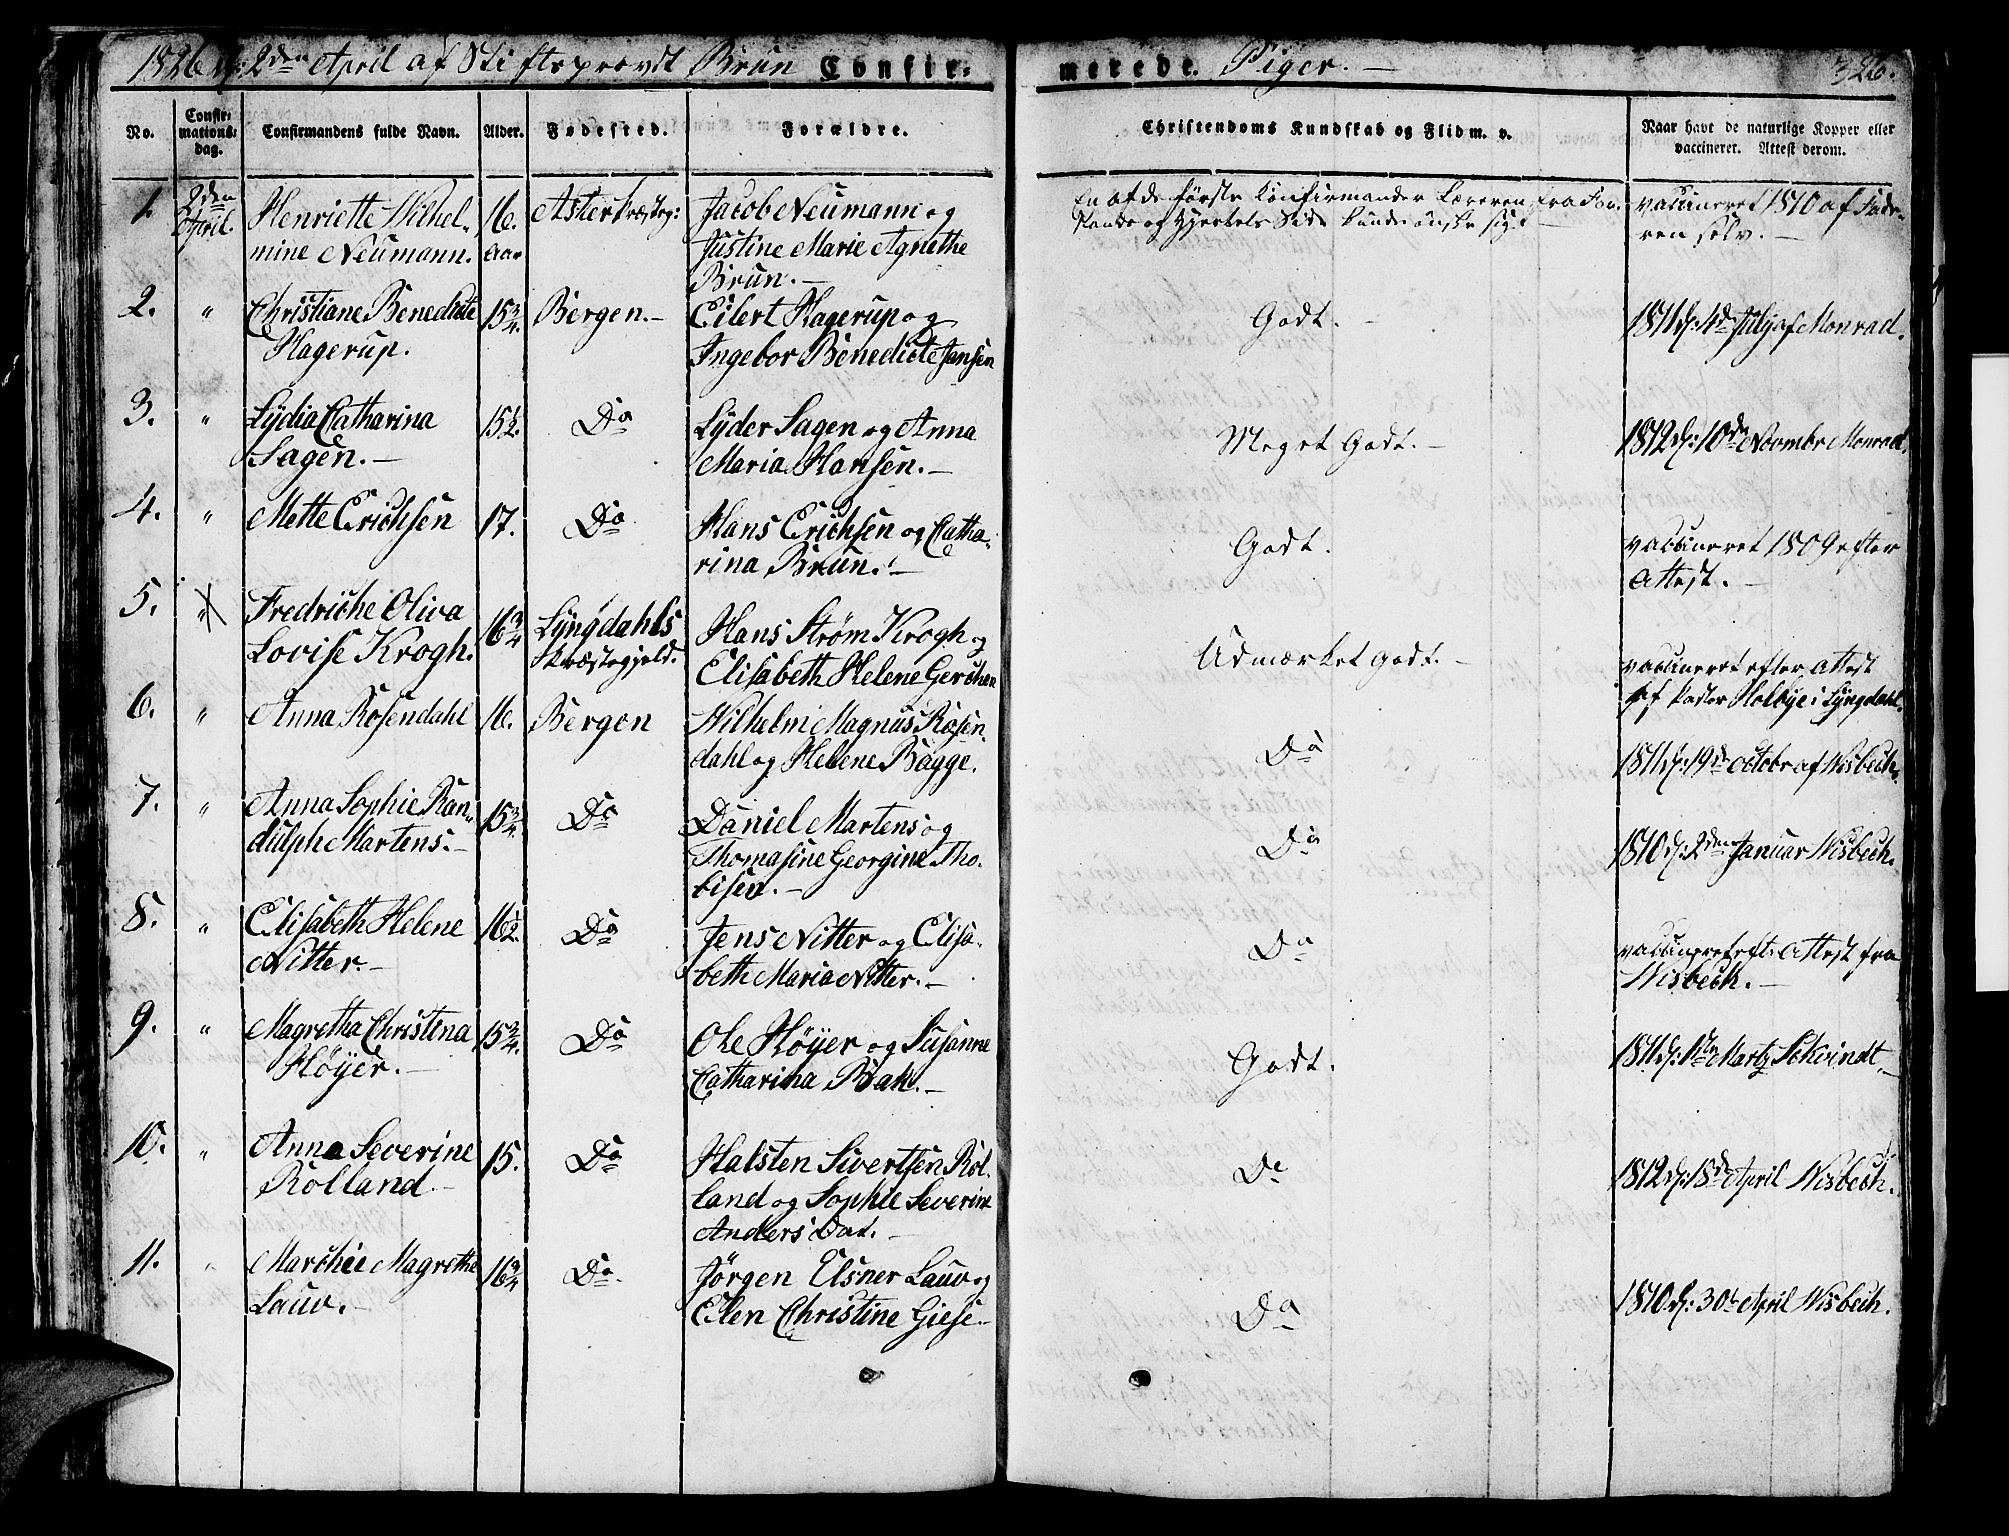 1826 d: 2den April af Stiftsprovst Brun Confir-
merede. Piger. —
326.
No.
Confir-
mations-
dag.
Confirmandens fulde Navn.
Alder.
Fødested.
Forældre.
Christendoms Kundskab og Flid m. v.
Naar havt de naturlige Kopper eller
vaccineret. Attest derom.
1.
2den
April.
Henriette Wilhel-
mine Neumann.
16.
Aar
Asker Præsteg:
Jacob Neumann og
Justine Marie Agnethe
Brun. —
En af de første Confirmander Læreren fra For-
stands og Hjertets Side kunde ønske sig —
vaccineret 1810 af Fade-
ren selv. —
2.
"
Christiane Benedicte
Hagerup.
15 3/4.
Bergen. —
Eilert Hagerup og
Ingebor Benedicte Jansen
Godt. —
1811 d: 4de July af Monrad.
3.
"
Lydia Catharina
Sagen. —
15 1/2.
Do
Lyder Sagen og Anna
Maria Hansen. —
Meget Godt. —
1812 d: 10de Novembr Monrad.
4.
"
Mette Erichsen
17.
Do
Hans Erichsen og Catha-
rina Brun. —
Godt.
vaccineret 1809 efter
Attest. —
5.
"
Fredriche Oliva
Lovise Krogh.
16 3/4
Lyngdahls
Præstegjeld.
Hans Strøm Krogh og
Elisabeth Helene Gerchen
Udmærket godt. —
vaccineret efter Attest
af Pastor Holbye i Lyngdahl.
6.
"
Anna Rosendahl
16.
Bergen
Wilhelm Magnus Rosen-
dahl og Helene Bagge.
Do
1811 d: 19de octobr af Wisbech.
7.
"
Anna Sophie Ran-
dulph Martens. —
15 3/4.
Do
Daniel Martens og
Thomasine Georgine Tho-
bisen. —
Do
1810 d: 2den Januar Wisbech.
8.
"
Elisabeth Helene
Nitter. —
16 1/2.
Do
Jens Nitter og Elisa-
beth Maria Nitter. —
Do
vaccineret eft: Attest fra
Wisbech. —
9.
"
Magretha Christina
Høyer. —
15 3/4.
Do
Ole Høyer og Susanne
Catharina Bak. —
Godt.
1811 d: 1ste Martz Schvindt. —
10.
"
Anna Severine
Rolland —
15.
Do
Halsten Sivertsen Rol-
land og Sophie Severine
Anders Dat. —
Do
1812 d: 18de April Wisbech.
11.
"
Marchie Magrethe
Lauv. —
16 3/4
Do
Jørgen Elsner Lauv og
Elen Christine Giese —
Do
1810 d: 30te April Wisbech.